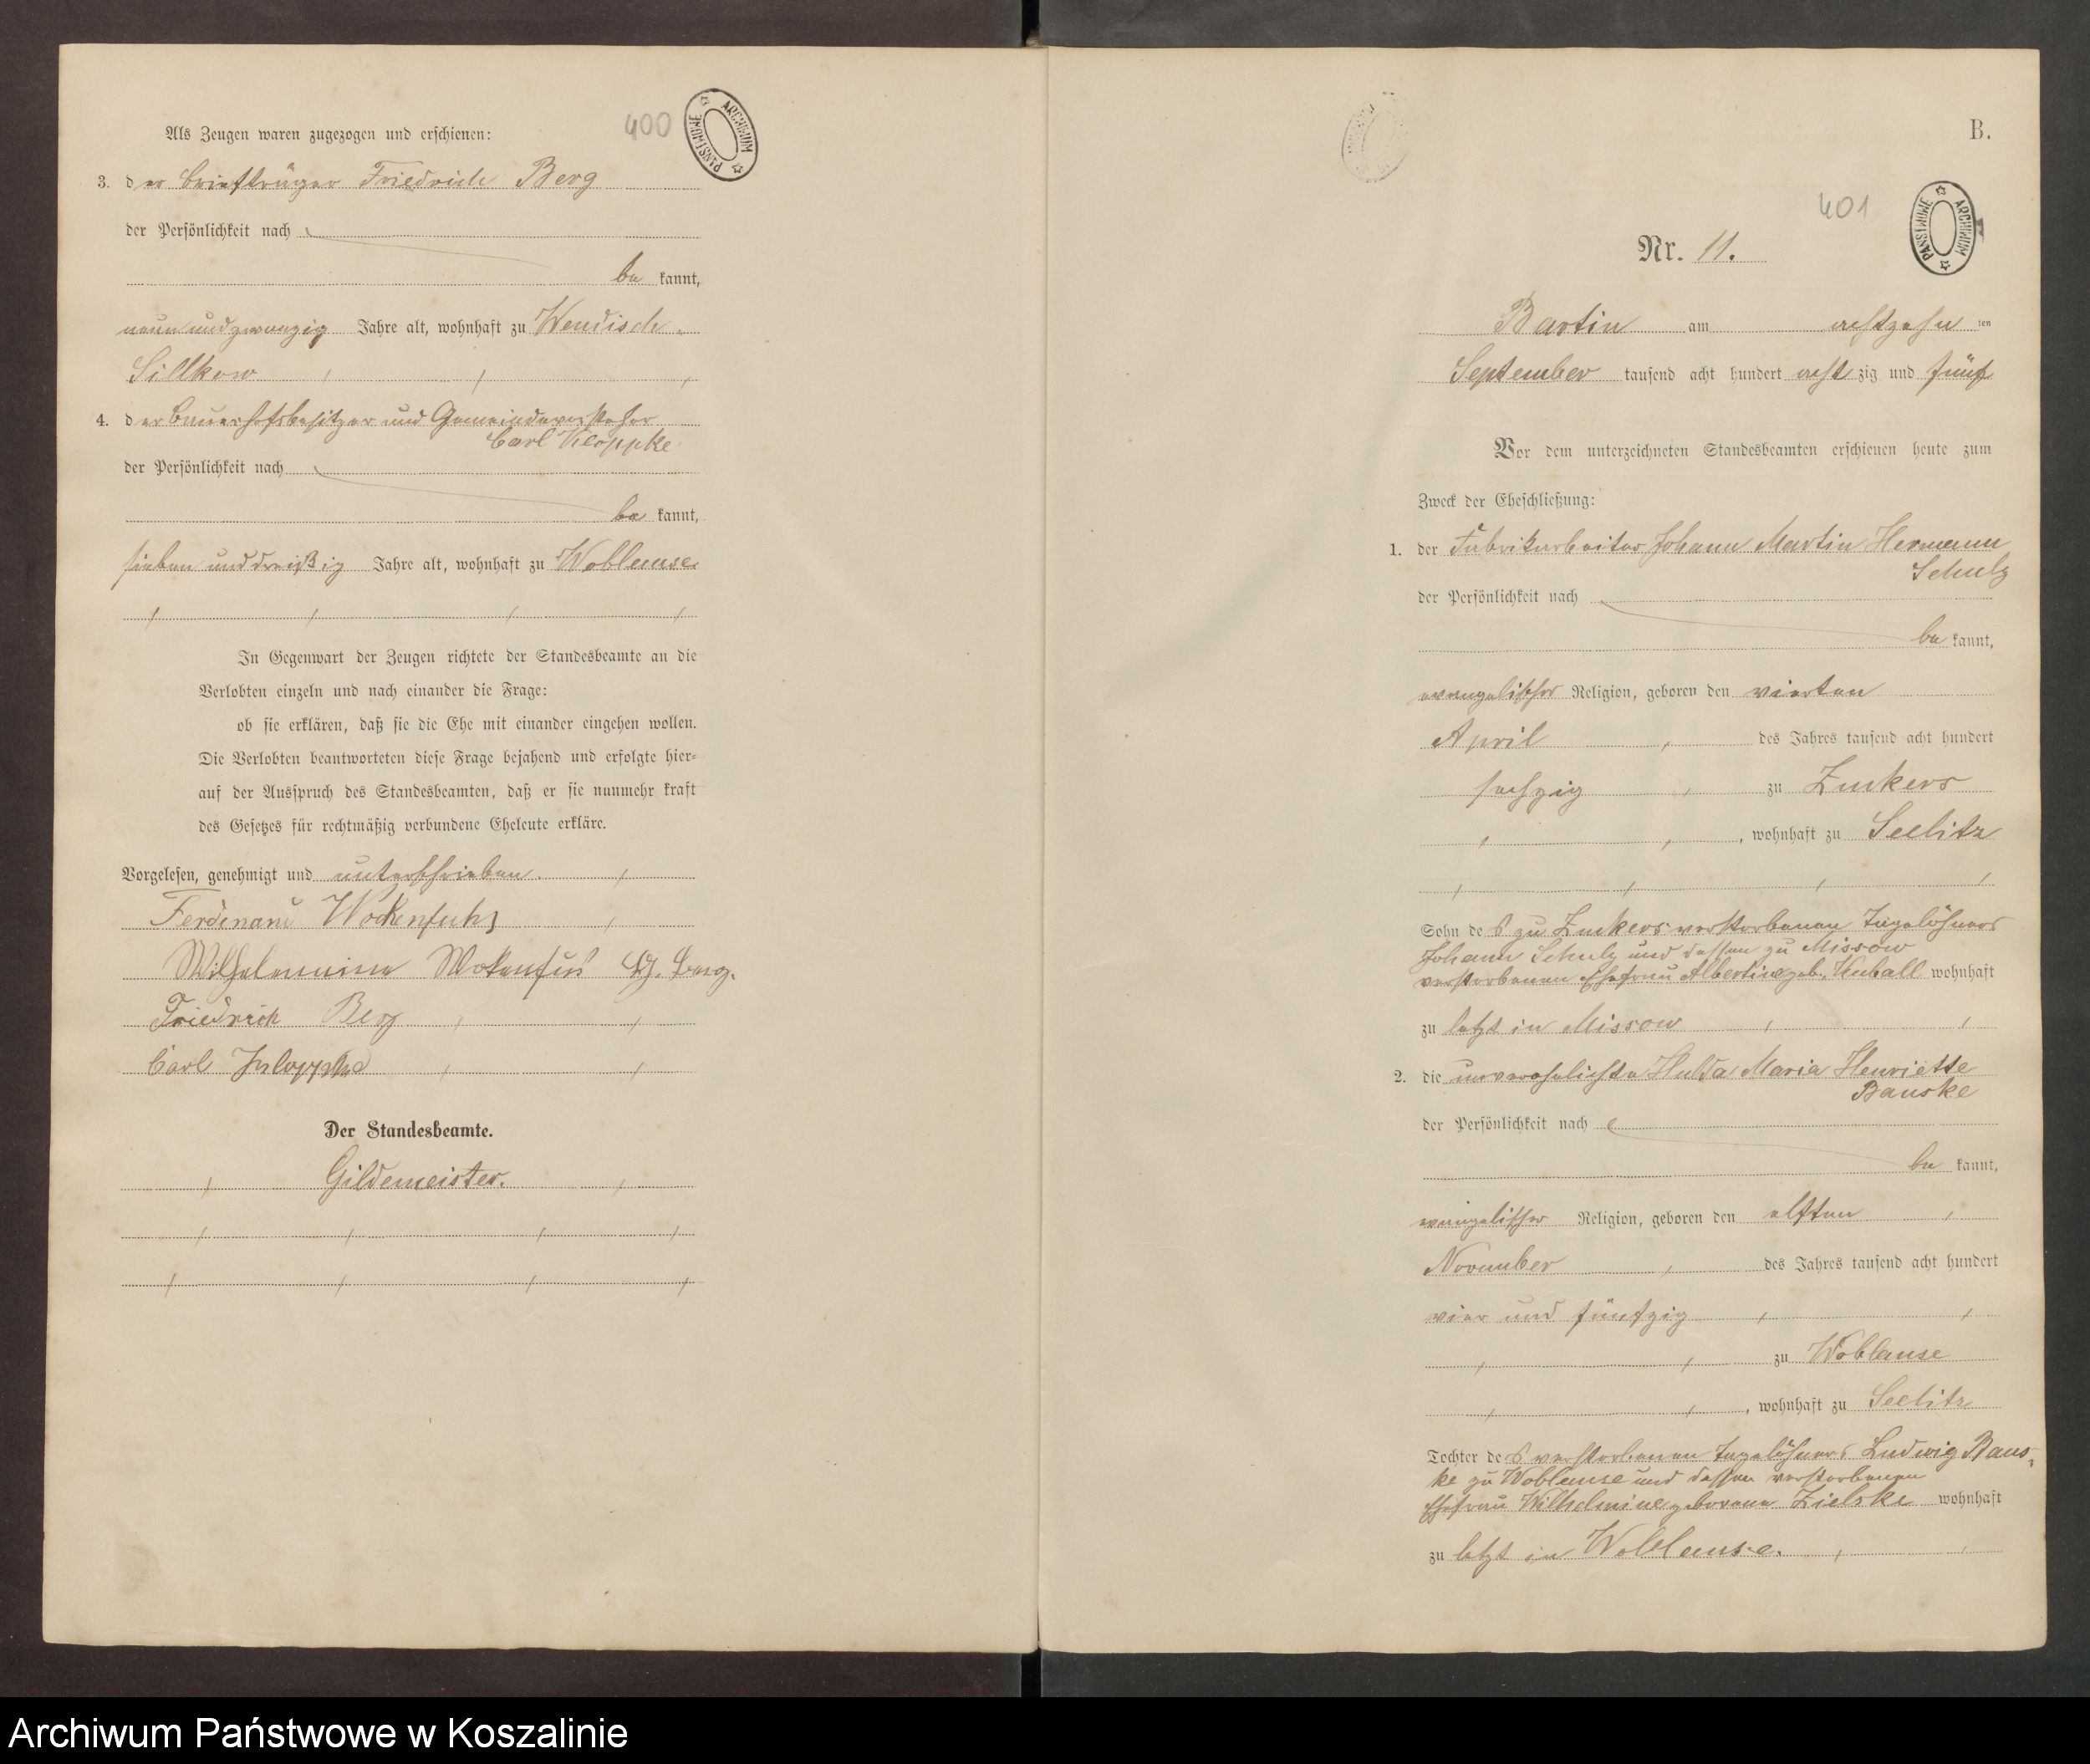 400
ARCHIWUM PAŃSTWOWE
Als Zeugen waren zugezogen und erschienen:
3. der Briefträger Friedrich Berg
der Persönlichkeit nach
be kannt,
neun und zwanzig Jahre alt, wohnhaft zu Wendisch-
Silkow
4. der Bauerhofsbesitzer und Gemeindevorsteher
Carl Kloppke
der Persönlichkeit nach
be kannt,
sieben und dreißig Jahre alt, wohnhaft zu Woblanse
In Gegenwart der Zeugen richtete der Standesbeamte an die
Verlobten einzeln und nach einander die Frage:
ob sie erklären, daß sie die Ehe mit einander eingehen wollen.
Die Verlobten beantworteten diese Frage bejahend und erfolgte hier-
auf der Ausspruch des Standesbeamten, daß er sie nunmehr kraft
des Gesetzes für rechtmäßig verbundene Eheleute erkläre.
Vorgelesen, genehmigt und unterschrieben.
Ferdinand Wockenfuhs
Wilhelmine Wokenfus g. Berg.
Friedrich Berg
Carl Kloppke
Der Standesbeamte.
Gildemeister.
B.
401
ARCHIWUM PAŃSTWOWE
Nr. 11.
Bartin am achtzehn ten
September tausend acht hundert acht zig und fünf
Vor dem unterzeichneten Standesbeamten erschienen heute zum
Zweck der Eheschließung:
1. der Fabrikarbeiter Johann Martin Hermann
Schulz
der Persönlichkeit nach
be kannt,
evangelischer Religion, geboren den vierten
April des Jahres tausend acht hundert
sechzig zu Zuckers
, wohnhaft zu Seelitz
Sohn des zu Zuckers verstorbenen Tagelöhners
Johann Schulz und dessen zu Missow
verstorbenen Ehefrau Albertine geb. Kuball wohnhaft
zu letzt in Missow
2. die unverehelichte Hulda Maria Henriette
Banske
der Persönlichkeit nach
be kannt,
evangelischer Religion, geboren den elften
November des Jahres tausend acht hundert
vier und fünfzig
zu Woblanse
, wohnhaft zu Seelitz
Tochter des verstorbenen Tagelöhners Ludwig Bans-
ke zu Woblanse und dessen verstorbenen
Ehefrau Wilhelmine geborene Zielske wohnhaft
zu letzt in Woblanse.
Archiwum Państwowe w Koszalinie